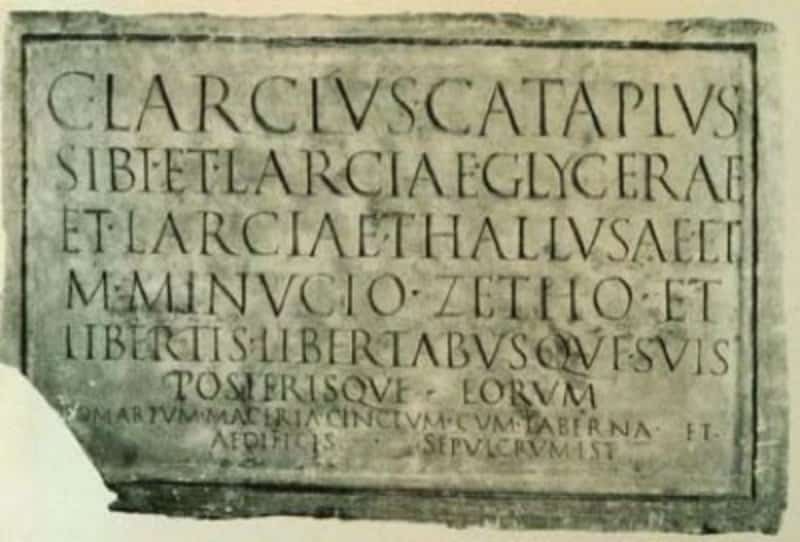 C·LARCIVS·CATAPLVS
SIBI·ET·LARCIAE·GLYCERAE
ET·LARCIAE·THALLVSAE·ET
M·MINVCIO·ZETHO·ET
LIBERTIS·LIBERTABVSQVE·SVIS
POSTERISQVE · EORVM
POMARIVM·MACERIA·CINCTVM·CVM·TABERNA· ET·
AEDIFICIS · SEPVLCRVM IST